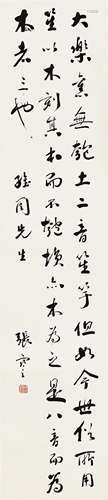 大樂寔無匏土二音笙竽但如今世俗所用
笙以木刻其本而不匏塤亦木為之是八音而為
木者三也
周先生 張謇